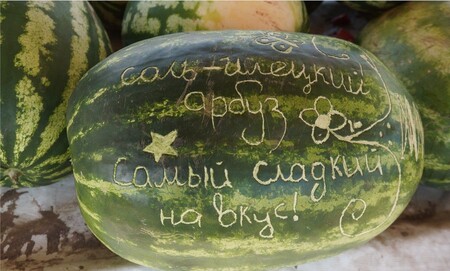 соль-илецкий
арбуз
Самый сладкий
на вкус!